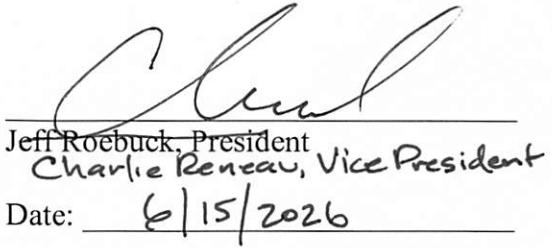 Jeff Roebuck, President
Charlie Reneau, Vice President
Date: 6/15/2026